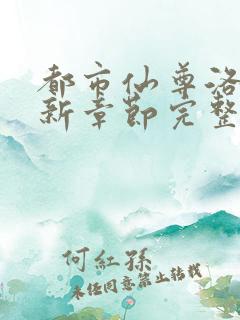 都市仙尊洛
新章节完整
何紅孫
未经同意禁止转载